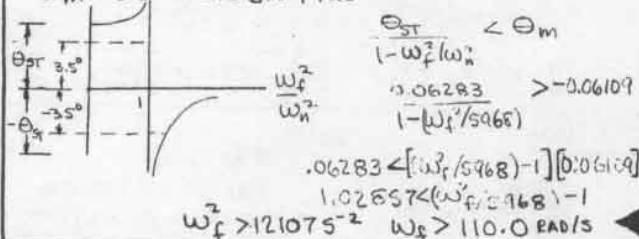 Θ_ST / (1-ω_f²/ω_n²) < Θ_m
Θ_ST
3.5°
-3.5°
-Θ_ST
1
ω_f²/ω_n²
0.06283 / (1-(ω_f²/5968)) > -0.06109
.06283 < [(ω_f²/5968)-1][0.06109]
1.02857 < (ω_f²/5968)-1
ω_f² > 12107 s⁻² ω_f > 110.0 RAD/S